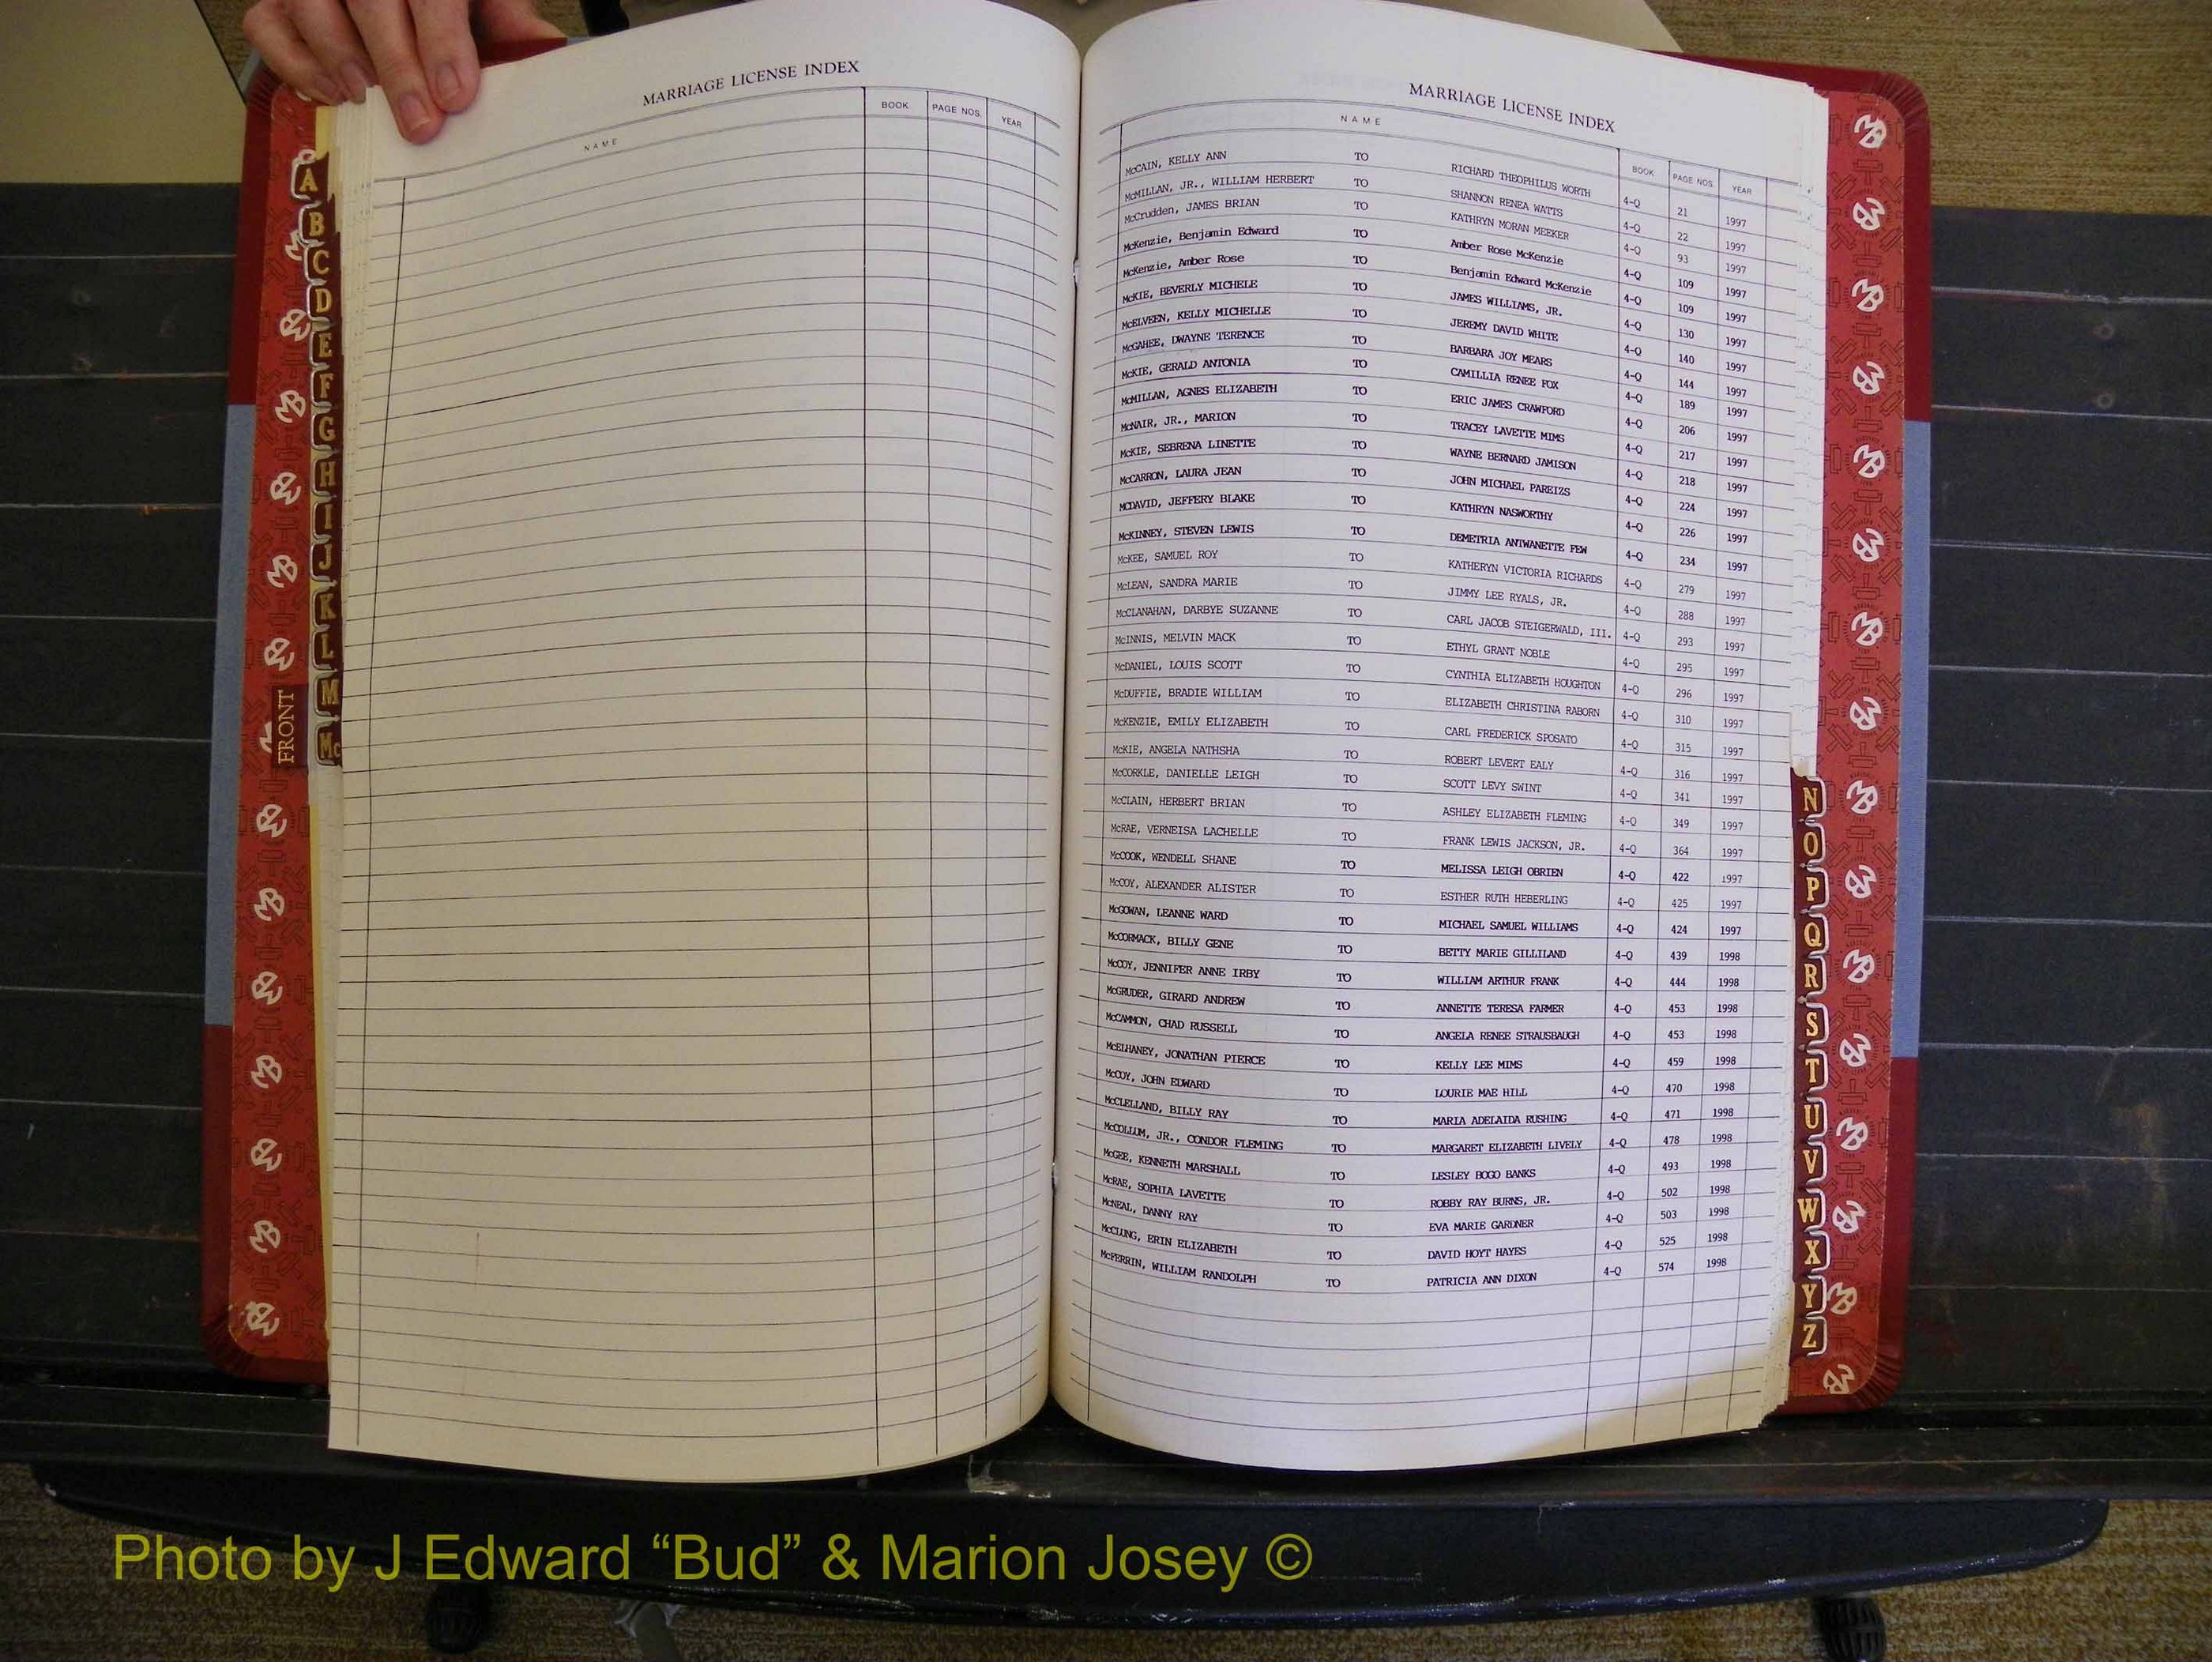 MARRIAGE LICENSE INDEX
NAME BOOK PAGE NOS. YEAR
A
B
C
D
E
F
G
H
I
J
K
L
M
Mc
FRONT
MARRIAGE LICENSE INDEX
NAME BOOK PAGE NOS. YEAR
McCAIN, KELLY ANN TO RICHARD THEOPHILUS WORTH 4-Q 21 1997
McMILLAN, JR., WILLIAM HERBERT TO SHANNON RENEA WATTS 4-Q 22 1997
McCrudden, JAMES BRIAN TO KATHRYN MORAN MEEKER 4-Q 93 1997
McKenzie, Benjamin Edward TO Amber Rose McKenzie 4-Q 109 1997
McKenzie, Amber Rose TO Benjamin Edward McKenzie 4-Q 109 1997
McKIE, BEVERLY MICHELE TO JAMES WILLIAMS, JR. 4-Q 130 1997
McELVEEN, KELLY MICHELLE TO JEREMY DAVID WHITE 4-Q 140 1997
McGAHEE, DWAYNE TERENCE TO BARBARA JOY MEARS 4-Q 144 1997
McKIE, GERALD ANTONIA TO CAMILLIA RENEE FOX 4-Q 189 1997
McMILLAN, AGNES ELIZABETH TO ERIC JAMES CRAWFORD 4-Q 206 1997
McNAIR, JR., MARION TO TRACEY LAVETTE MIMS 4-Q 217 1997
McKIE, SEBRENA LINETTE TO WAYNE BERNARD JAMISON 4-Q 218 1997
McCARRON, LAURA JEAN TO JOHN MICHAEL PAREIZS 4-Q 224 1997
MCDAVID, JEFFERY BLAKE TO KATHRYN NASWORTHY 4-Q 226 1997
McKINNEY, STEVEN LEWIS TO DEMETRIA ANTWANETTE FEW 4-Q 234 1997
McKEE, SAMUEL ROY TO KATHERYN VICTORIA RICHARDS 4-Q 279 1997
McLEAN, SANDRA MARIE TO JIMMY LEE RYALS, JR. 4-Q 288 1997
McCLANAHAN, DARBYE SUZANNE TO CARL JACOB STEIGERWALD, III. 4-Q 293 1997
McINNIS, MELVIN MACK TO ETHYL GRANT NOBLE 4-Q 295 1997
McDANIEL, LOUIS SCOTT TO CYNTHIA ELIZABETH HOUGHTON 4-Q 296 1997
McDUFFIE, BRADIE WILLIAM TO ELIZABETH CHRISTINA RABORN 4-Q 310 1997
McKENZIE, EMILY ELIZABETH TO CARL FREDERICK SPOSATO 4-Q 315 1997
McKIE, ANGELA NATHSHA TO ROBERT LEVERT EALY 4-Q 316 1997
McCORKLE, DANIELLE LEIGH TO SCOTT LEVY SWINT 4-Q 341 1997
McCLAIN, HERBERT BRIAN TO ASHLEY ELIZABETH FLEMING 4-Q 349 1997
McRAE, VERNEISA LACHELLE TO FRANK LEWIS JACKSON, JR. 4-Q 364 1997
McCOOK, WENDELL SHANE TO MELISSA LEIGH OBRIEN 4-Q 422 1997
McCOY, ALEXANDER ALISTER TO ESTHER RUTH HEBERLING 4-Q 425 1997
McGOWAN, LEANNE WARD TO MICHAEL SAMUEL WILLIAMS 4-Q 424 1997
McCORMACK, BILLY GENE TO BETTY MARIE GILLILAND 4-Q 439 1998
McCOY, JENNIFER ANNE IRBY TO WILLIAM ARTHUR FRANK 4-Q 444 1998
McGRUDER, GIRARD ANDREW TO ANNETTE TERESA FARMER 4-Q 453 1998
McCAMMON, CHAD RUSSELL TO ANGELA RENEE STRAUSBAUGH 4-Q 453 1998
McELHANEY, JONATHAN PIERCE TO KELLY LEE MIMS 4-Q 459 1998
McCOY, JOHN EDWARD TO LOURIE MAE HILL 4-Q 470 1998
McCLELLAND, BILLY RAY TO MARIA ADELAIDA RUSHING 4-Q 471 1998
McCOLLUM, JR., CONDOR FLEMING TO MARGARET ELIZABETH LIVELY 4-Q 478 1998
McGEE, KENNETH MARSHALL TO LESLEY BOGO BANKS 4-Q 493 1998
McRAE, SOPHIA LAVETTE TO ROBBY RAY BURNS, JR. 4-Q 502 1998
McNEAL, DANNY RAY TO EVA MARIE GARDNER 4-Q 503 1998
McCLUNG, ERIN ELIZABETH TO DAVID HOYT HAYES 4-Q 525 1998
McFERRIN, WILLIAM RANDOLPH TO PATRICIA ANN DIXON 4-Q 574 1998
N
O
P
Q
R
S
T
U
V
W
X
Y
Z
Photo by J Edward “Bud” & Marion Josey ©